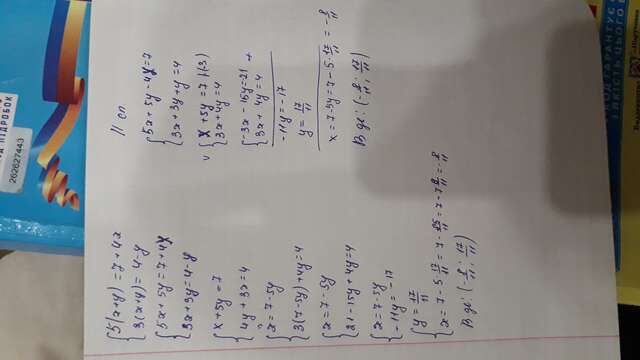 {5(x+y) = 7 + 4x
{3(x+y) = 4 - y
{5x + 5y = 7 + 4x
{3x + 3y = 4 - y
{x + 5y = 7
{4y + 3x = 4
{x = 7 - 5y
{3(7 - 5y) + 4y = 4
{x = 7 - 5y
{21 - 15y + 4y = 4
{x = 7 - 5y
{-11y = -17
{y = 17/11
{x = 7 - 5 · 17/11 = 7 - 85/11 = 7 - 7 8/11 = -8/11
Вiдп: (-8/11; 17/11)
II сп
{5x + 5y - 4x = 7
{3x + 3y + y = 4
{x + 5y = 7 |(-3)
{3x + 4y = 4
{-3x - 15y = -21 +
{3x + 4y = 4
-11y = -17
y = 17/11
x = 7 - 5y = 7 - 5 · 17/11 = -8/11
Вiдп: (-8/11; 17/11)
262627443